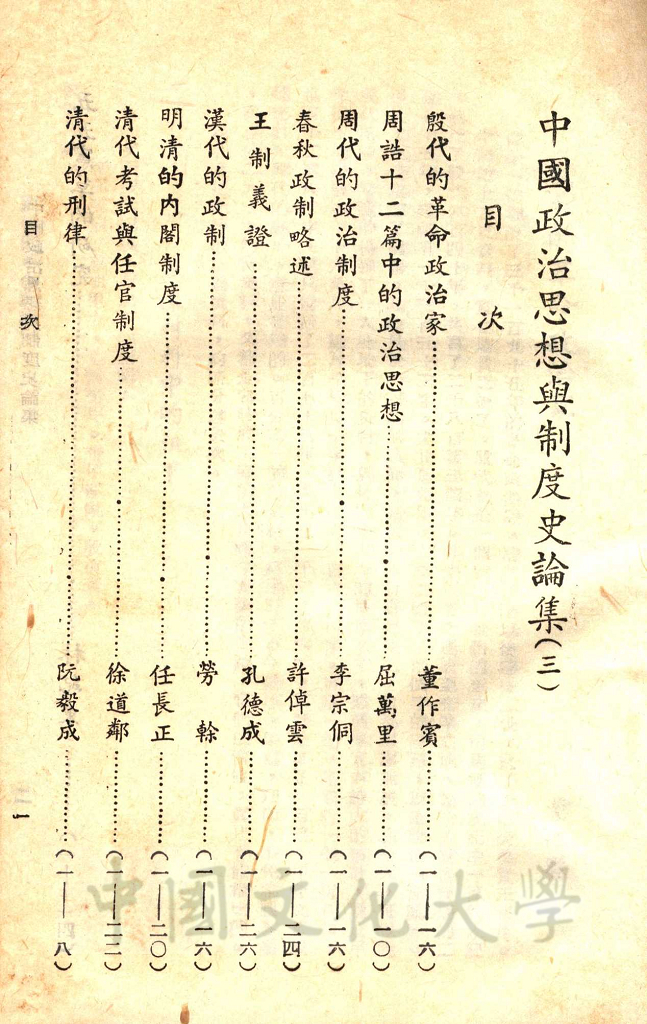 中國政治思想與制度史論集(三)
目次
殷代的革命政治家……………董作賓……(一——一六)
周誥十二篇中的政治思想……………屈萬里……(一——一〇)
周代的政治制度……………李宗侗……(一——一六)
春秋政制略述……………許倬雲……(一——二四)
王制義證……………孔德成……(一——二六)
漢代的政制……………勞榦……(一——一六)
明清的內閣制度……………任長正……(一——二〇)
清代考試與任官制度……………徐道鄰……(一——二二)
清代的刑律……………阮毅成……(一——四八)
目次 一
中國文化大學